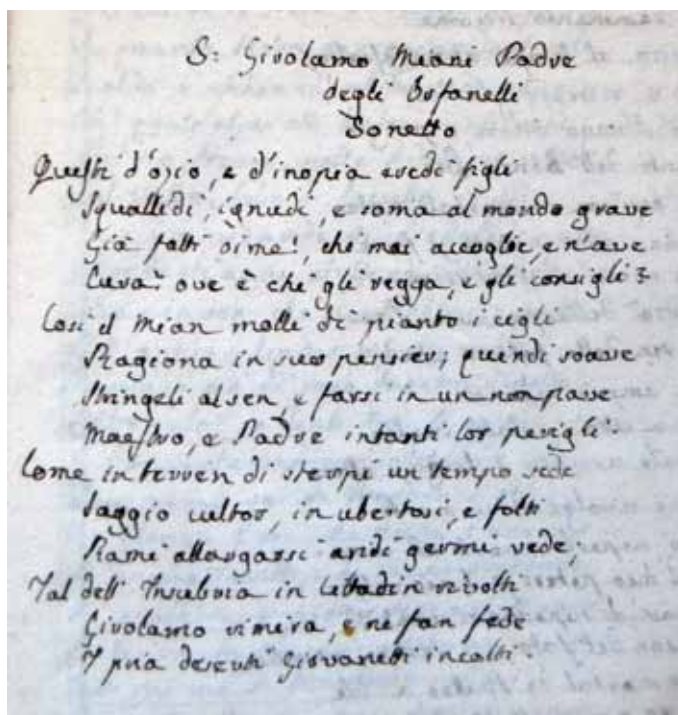 S: Girolamo Miani Padre
degli Orfanelli
Sonetto
Questi d'ozio, e d'inopia eredi figli
Squallidi, ignudi, e soma al mondo grave
Già fatti oimè!, chi mai accoglie, e n'ave
Cura? ove è chi gli regga, e gli consigli?
Così il Mian molle di pianto i cigli
Ragiona in suo pensier; quindi soave
Stringeli al sen, e farsi in un non pave
Maestro, e Padre intanti lor perigli.
Come in terren di sterpi un tempo sede
Saggio cultor, in ubertosi, e folti
Rami allargarsi aridi germi vede;
Tal dell' Insubria in Cittadin rivolti
Girolamo rimira, e ne fan fede
I pria deserti Giovanetti incolti.